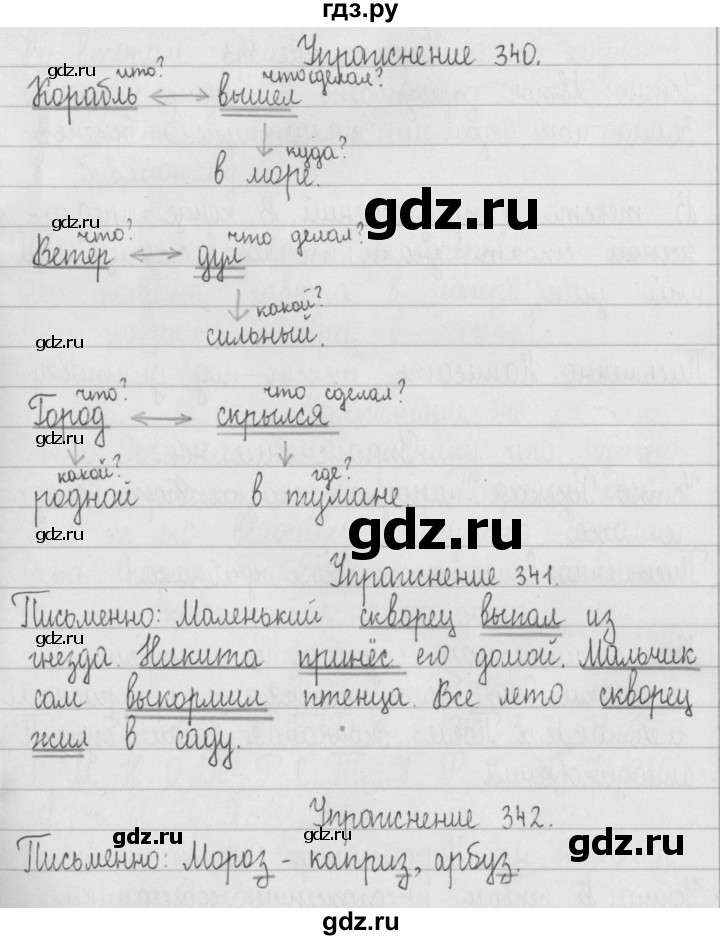 гдз.ру
Упражнение 340.
gdz.ru что? что сделал?
Корабль вышел
куда?
в море.
gdz.ru
gdz.ru
что? что делал?
Ветер дул
какой?
gdz.ru сильный.
что? что сделал?
Город скрылся
gdz.ru
какой? где?
родной в тумане.
gdz.ru
gdz.ru
Упражнение 341.
Письменно: Маленький скворец выпал из
гнезда. Никита принёс его домой. Мальчик
сам выкормил птенца. Все лето скворец
жил в саду.
Упражнение 342.
gdz.ru gdz.ru gdz.ru
Письменно: Мороз - каприз, арбуз.
gdz.ru